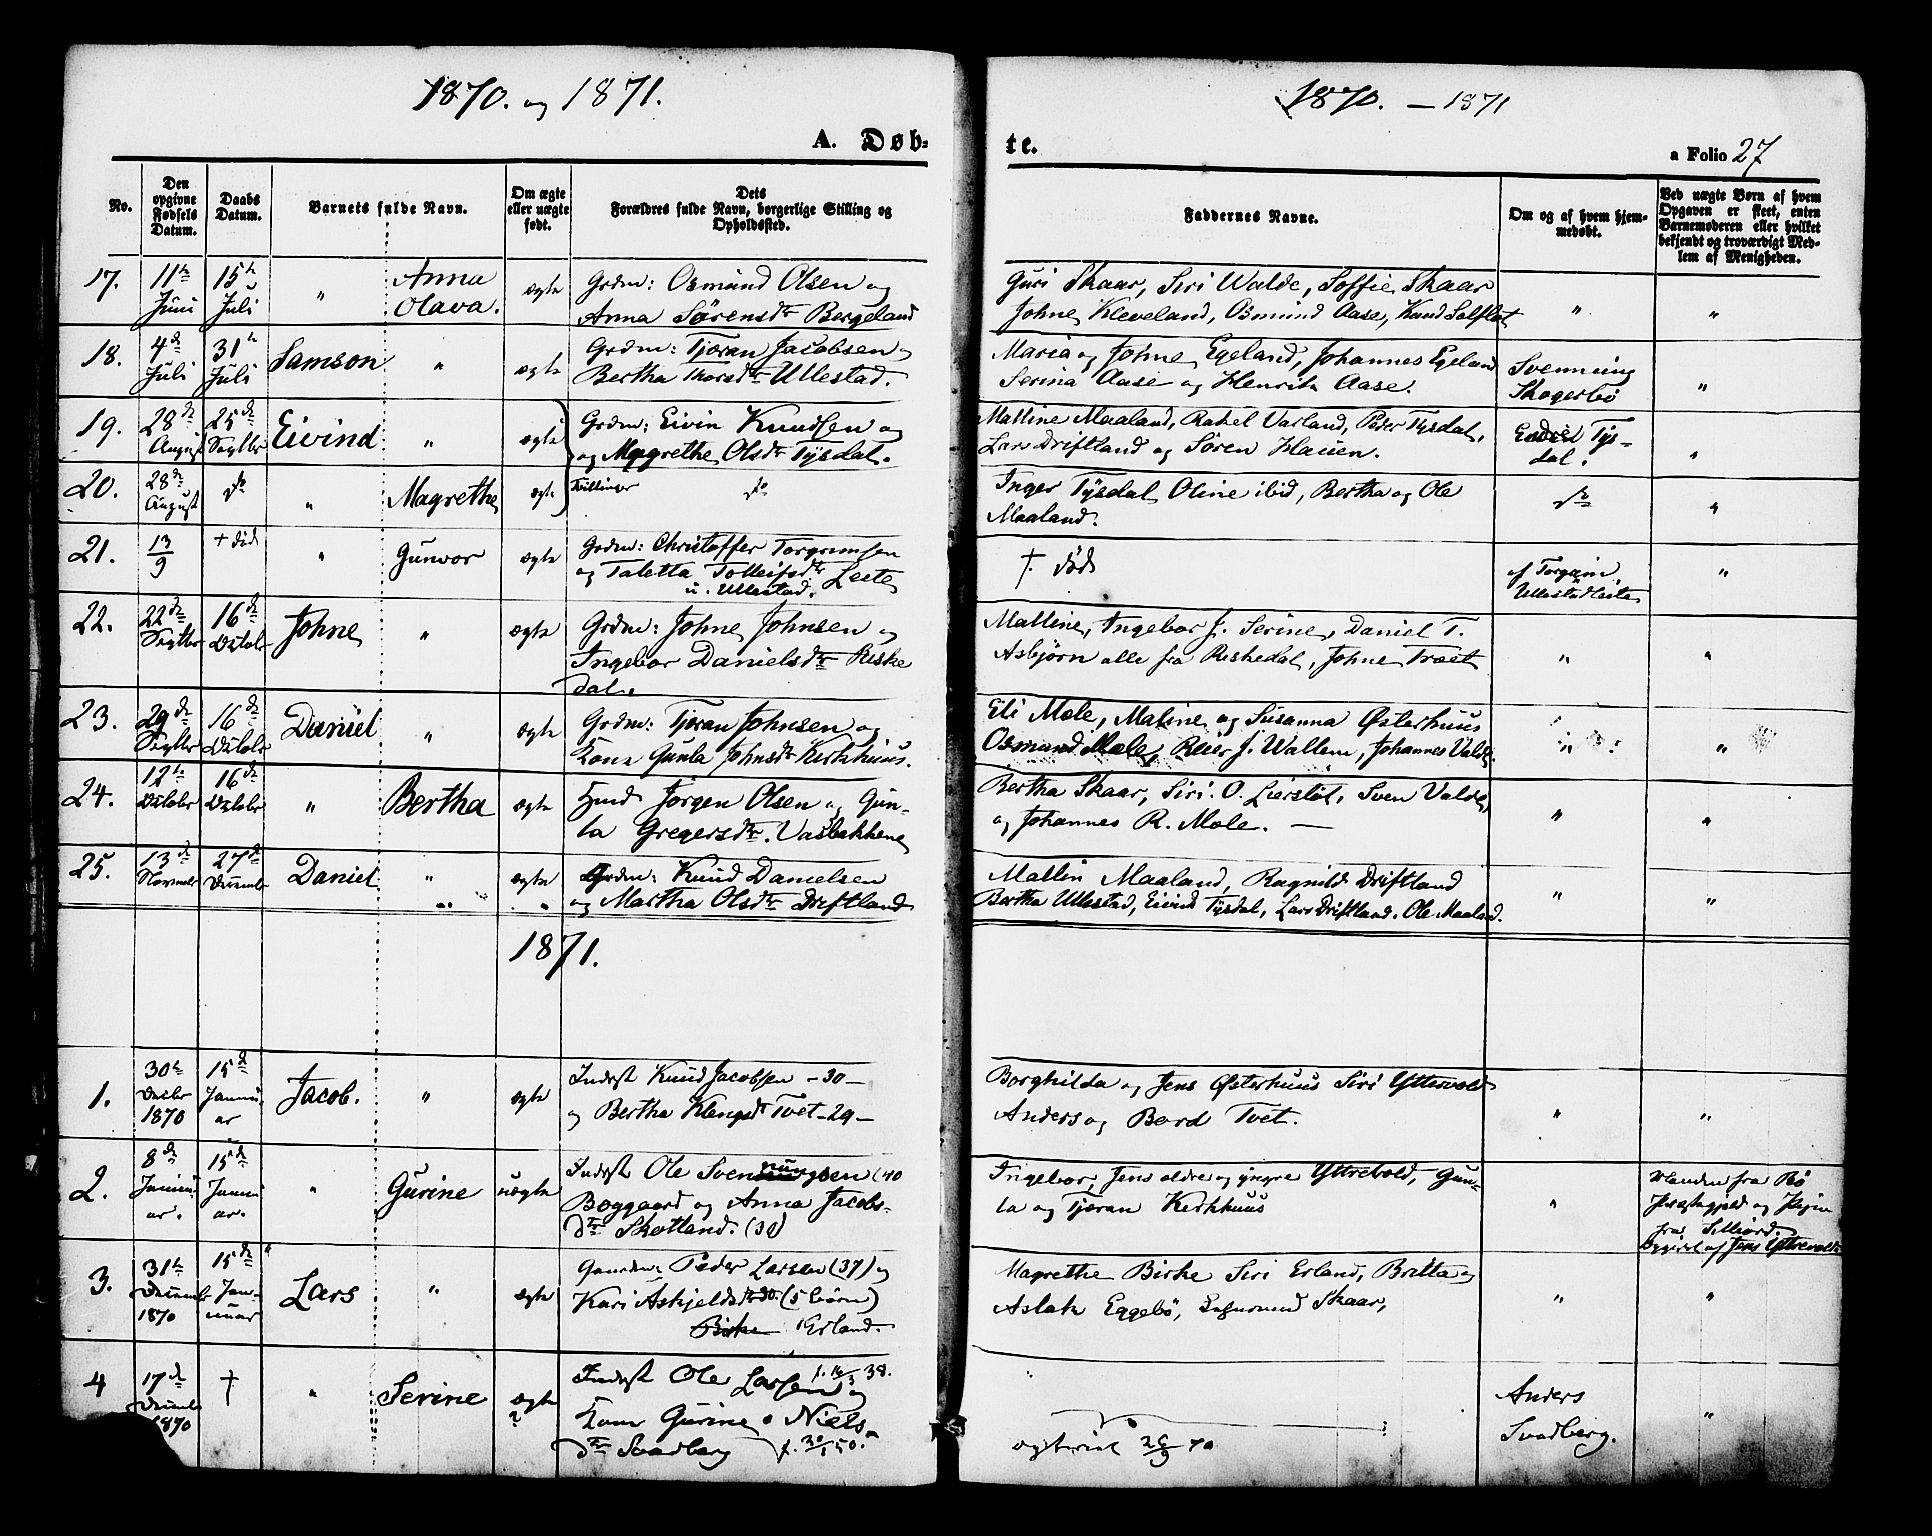 1870. og 1871.
1870. — 1871
A. Døb-
te.
a Folio 27
No.
Den opgivne Fødsels Datum.
Daabs Datum.
Barnets fulde Navn.
Om ægte eller uægte født.
Dets Forældres fulde Navn, borgerlige Stilling og Opholdssted.
Faddernes Navne.
Om og af hvem hjem-
medøbt.
Ved uægte Børn af hvem
Opgaven er skeet, enten
Barnemoderen eller hvilket
bekjendt og troværdigt Med-
lem af Menigheden.
17. 11te Juni 15de Juli " Anna Olava. ægte
Grdm: Osmund Olsen og
Anna Sørensdtr Bergeland
Guri Skaar, Siri Walde, Soffie Skaar
Johne Kleveland, Osmund Aase, Knud
" "
18. 4de Juli 31te Juli Samson " ægte
Grdm: Tjøran Jacobsen
Bertha Thorsdtr Ullestad.
Maria og Johne Egeland, Johannes Egeland
Serina Aase og Henrik Aase.
Svenning
Skogerbø
"
19. 28de August 25de Septbr Eivind " ægte
Grdm: Eivin Knudsen og
og Magrethe Olsdtr Tysdal.
Malline Maaland, Rakel Varland, Peder Tysdal,
Lars Driftland og Søren Hauen.
Endre Tys-
dal.
"
20. 28de August do " Magrethe ægte
Tvillinger do
Inger Tysdal Oline ibid, Bertha og Ole
Maaland.
do "
21. 13/9 + död " Gunvor ægte
Grdm: Christoffer Torgrimsen
og Taletta Tolleifsdtr Leete
u. Ullestad.
†. död
af Torgrim
Ullestadleite
"
22. 22de Septbr 16de Octobr Johne " ægte
Grdm: Johne Johnsen og
Ingebor Danielsdtr Riske
dal.
Malline, Ingebor J. Serine, Daniel T.
Asbjørn alle fra Riskedal, Johne Træet
" "
23. 29de Septbr 16de Octobr Daniel " ægte
Grdm: Tjøran Johnsen og
Kone Gunla Johnsdtr Kirkhuus.
Eli Mæle, Maline og Susanna Østerhuus
Osmund Mæle, Reier J. Wallem, Johannes Valde.
" "
24. 12te Octobr 16de Octobr " Bertha ægte
Hmd Jörgen Olsen og Gun-
la Gregersdtr. Vasbekkene
Bertha Skaar, Siri O. Lierslöt, Sven Valde,
og Johannes R. Mæle. —
" "
25. 13de Novembr 27de Decembr Daniel " ægte
Grdm: Knud Danielsen
og Martha Olsdtr Driftland
Mallin Maaland, Ragnild Driftland
Bertha Ullestad, Eivind Tysdal, Lars Driftland, Ole Maaland.
" "
1871.
1. 30te Decbr 1870 15de Janu-
ar Jacob. " ægte
Inderst Knud Jacobsen —30—
og Bertha Klengsdtr Tvet —29—
Borghilda og Jens Østerhuus Siri Yttrevold
Anders og Bord Tvet.
" "
2. 8de Janu-
ar. 15de Janu
ar. " Gurine uægte
Inderst Ole Svenningsen (40
Boggaard og Anna Jacobs-
dtr Skotland. (30)
Ingebor, Jens eldre og yngre Yttrebold, Gun-
la og Tjøran Kirkhuus
"
Manden fra Bö
Præstegjeld og Pigen
fra
Opgivet af Jens Yttrevold
3. 31te Decembr 1870 15de Jan-
uar Lars " ægte
Gaardm: Peder Larsen (37) og
Kari Askjeldsdtr 30. (5 börn)
Birke Erland.
Magrethe Birke Siri Erland, Britta og
Aslak Eggebö, Sigurmund Skaar,
" "
4 17de Decembr 1870 † " Serine ægte ?
Inderst Ole Larsen og f. 16/3 38.
Kone Gurine Niels-
dtr Svadberg f. 30/1 50.
26/9 70
Anders
Svadberg.
"